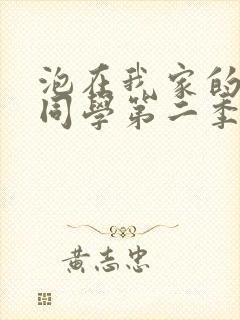 泡在我家的
同學第二季
黃志忠